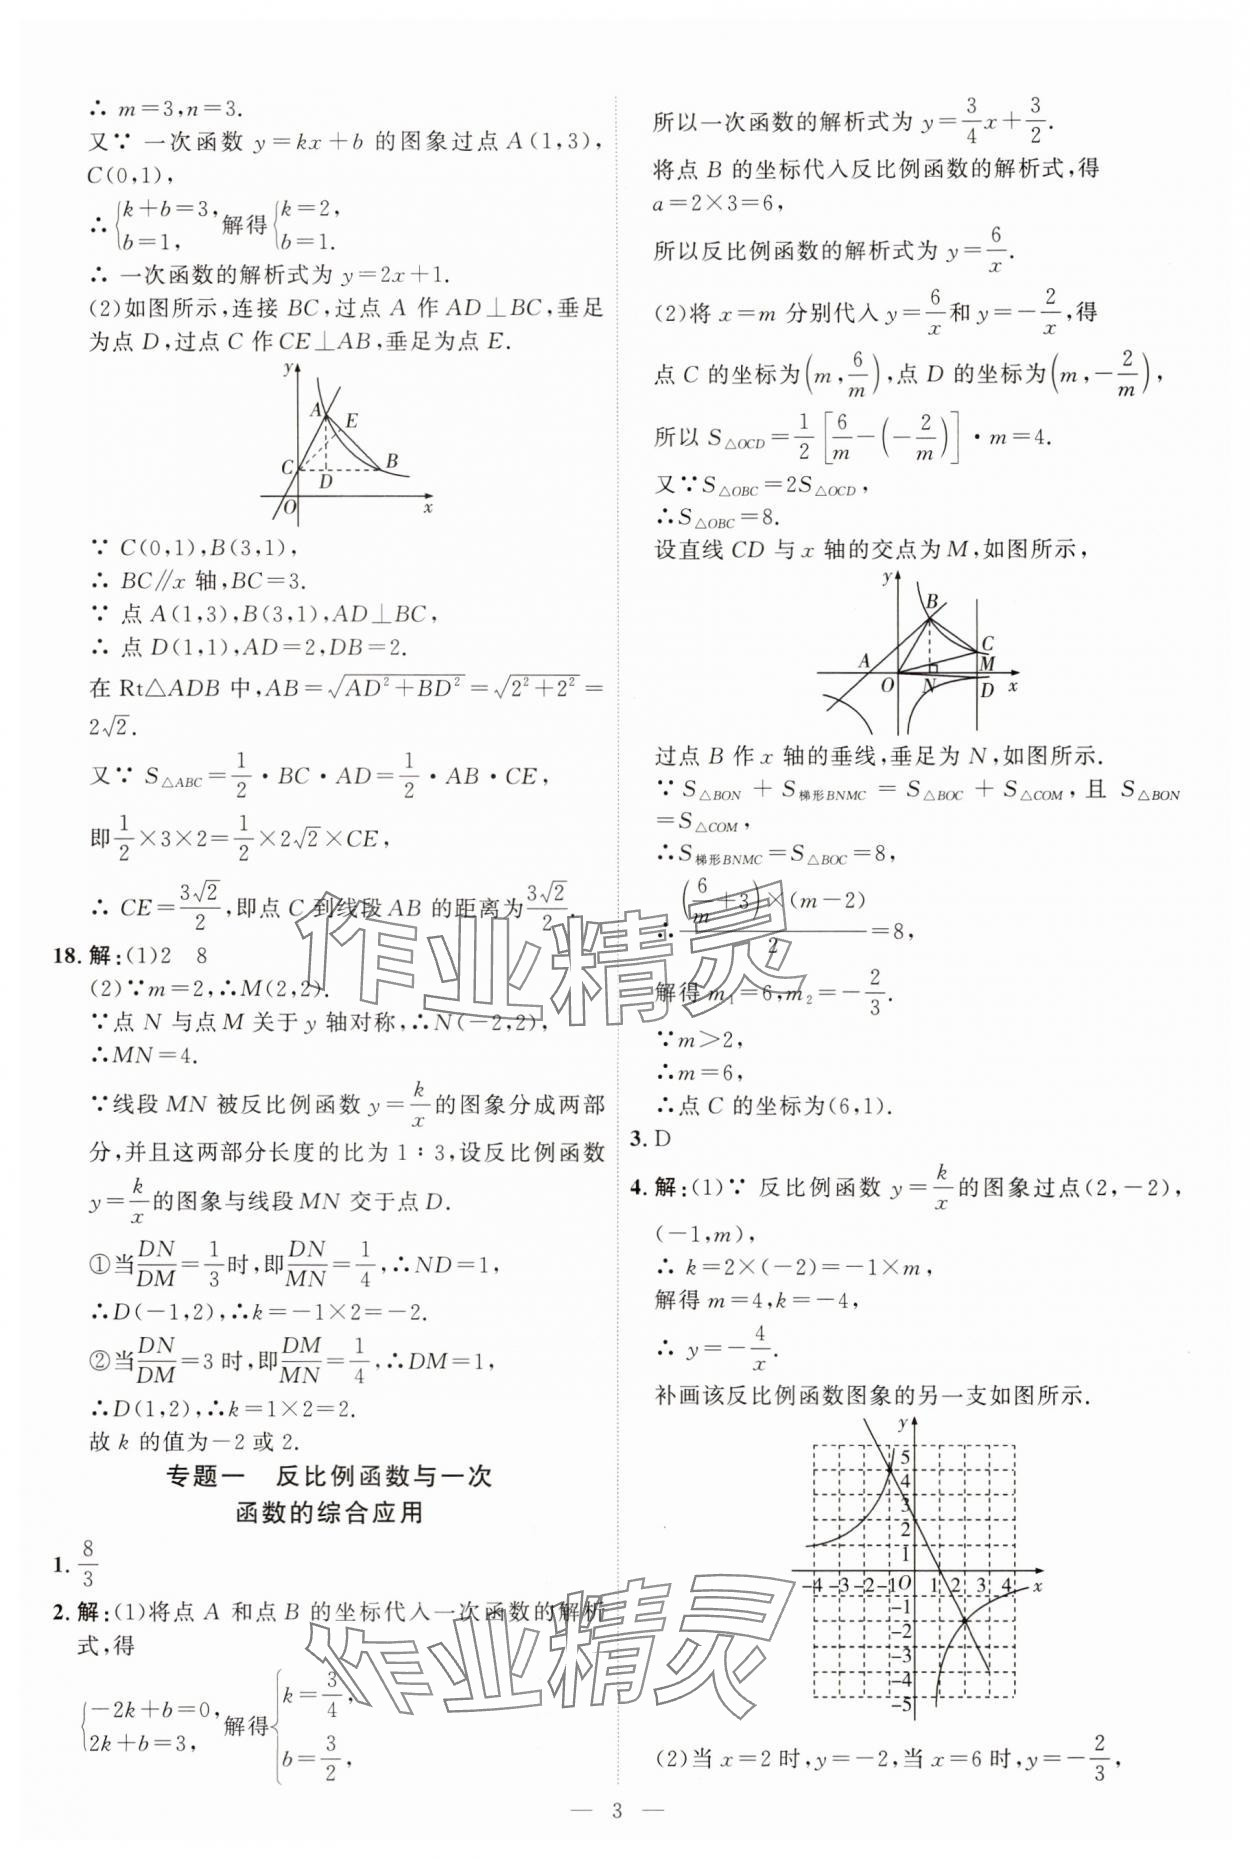 ∴ m=3,n=3.
又∵ 一次函数 y=kx+b 的图象过点 A(1,3),
C(0,1),
∴{k+b=3, b=1, 解得{k=2, b=1.
∴ 一次函数的解析式为 y=2x+1.
(2)如图所示,连接 BC,过点 A 作 AD⊥BC,垂足
为点 D,过点 C 作 CE⊥AB,垂足为点 E.
y
A
E
C
B
D
O
x
∵ C(0,1),B(3,1),
∴ BC∥x 轴,BC=3.
∵ 点 A(1,3),B(3,1),AD⊥BC,
∴ 点 D(1,1),AD=2,DB=2.
在 Rt△ADB 中,AB=√(AD²+BD²)=√(2²+2²)=
2√2.
又∵ S△ABC=1/2·BC·AD=1/2·AB·CE,
即1/2×3×2=1/2×2√2×CE,
∴ CE=3√2/2,即点 C 到线段 AB 的距离为3√2/2.
18.解:(1)2 8
(2)∵m=2,∴M(2,2).
∵点 N 与点 M 关于 y 轴对称,∴N(-2,2),
∴MN=4.
∵线段 MN 被反比例函数 y=k/x的图象分成两部
分,并且这两部分长度的比为 1∶3,设反比例函数
y=k/x的图象与线段 MN 交于点 D.
①当DN/DM=1/3时,即DN/MN=1/4,∴ND=1,
∴D(-1,2),∴k=-1×2=-2.
②当DN/DM=3 时,即DM/MN=1/4,∴DM=1,
∴D(1,2),∴k=1×2=2.
故 k 的值为-2 或 2.
专题一 反比例函数与一次
函数的综合应用
1. 8/3
2.解:(1)将点 A 和点 B 的坐标代入一次函数的解析
式,得
{-2k+b=0, 2k+b=3, 解得{k=3/4, b=3/2,
所以一次函数的解析式为 y=3/4x+3/2.
将点 B 的坐标代入反比例函数的解析式,得
a=2×3=6,
所以反比例函数的解析式为 y=6/x.
(2)将 x=m 分别代入 y=6/x和 y=-2/x,得
点 C 的坐标为(m,6/m),点 D 的坐标为(m,-2/m),
所以 S△OCD=1/2[6/m-(-2/m)]·m=4.
又∵S△OBC=2S△OCD,
∴S△OBC=8.
设直线 CD 与 x 轴的交点为 M,如图所示,
y
B
C
A
M
O
N
D
x
过点 B 作 x 轴的垂线,垂足为 N,如图所示.
∵ S△BON + S梯形BNMC = S△BOC + S△COM, 且 S△BON
=S△COM,
∴S梯形BNMC=S△BOC=8,
∴(6/m+3)×(m-2)/2=8,
解得 m₁=6,m₂=-2/3.
∵m>2,
∴m=6,
∴点 C 的坐标为(6,1).
3. D
4.解:(1)∵ 反比例函数 y=k/x的图象过点(2,-2),
(-1,m),
∴ k=2×(-2)=-1×m,
解得 m=4,k=-4,
∴ y=-4/x.
补画该反比例函数图象的另一支如图所示.
y
5
4
3
2
1
-4 -3 -2 -1 O 1 2 3 4 x
-1
-2
-3
-4
-5
(2)当 x=2 时,y=-2,当 x=6 时,y=-2/3,
— 3 —
作业精灵
作业精灵